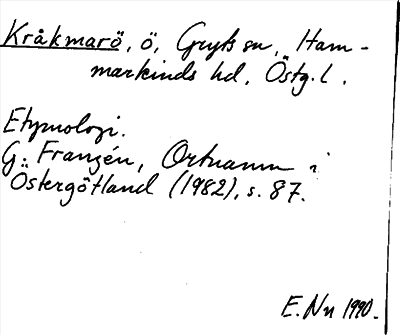 Kråkmarö, ö, Gryts sn, Ham-
markinds hd, Östg. l.
Etymologi.
G. Franzén, Ortnamn i
Östergötland (1982), s. 87.
E. Nn 1990.